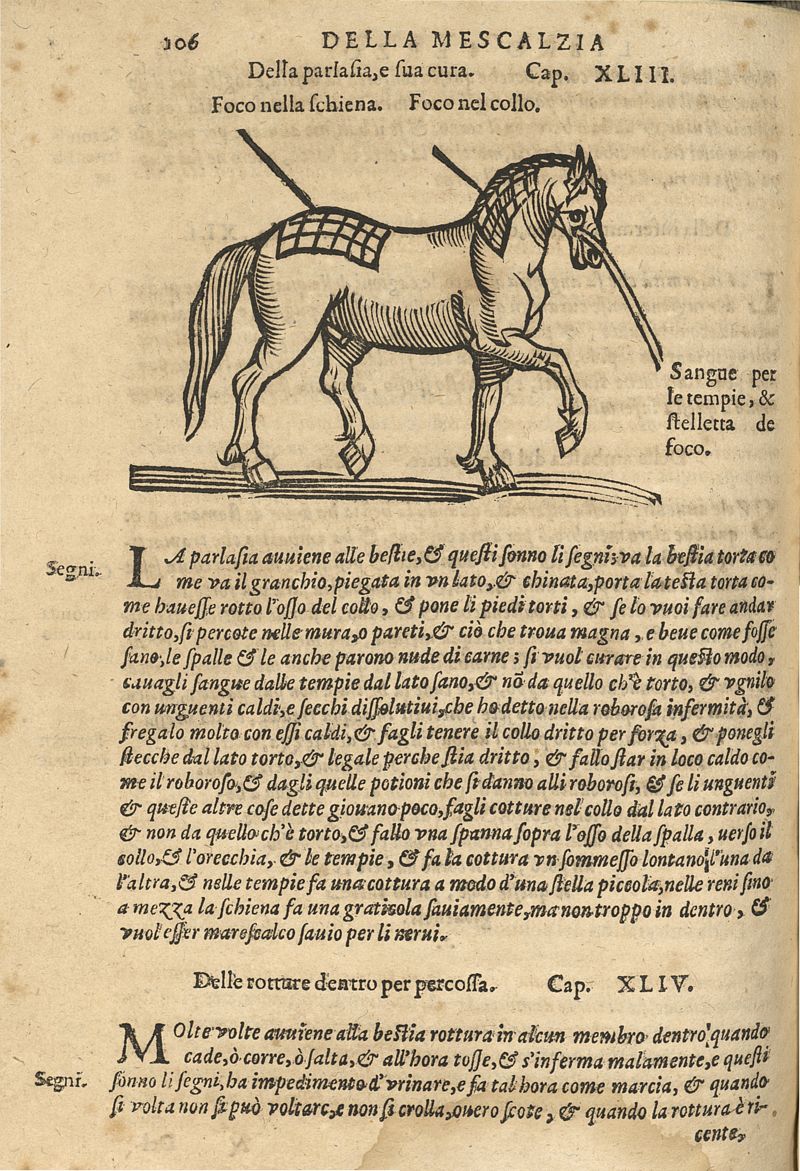 106
DELLA MESCALZIA
Della parlasia, e sua cura. Cap. XLIII.
Foco nella schiena. Foco nel collo.
Sangue per
le tempie, &
stelletta de
foco.
Segni.
LA parlasia auuiene alle bestie, & questi sonno li segni: va la bestia torta co
me va il granchio, piegata in vn lato, & chinata, porta la testa torta co-
me hauesse rotto l'osso del collo, & pone li piedi torti, & se lo vuoi fare andar
dritto, si percote nelle mura, o pareti, & ciò che troua magna, e beue come fosse
sano, le spalle & le anche parono nude di carne; si vuol curare in questo modo,
cauagli sangue dalle tempie dal lato sano, & nõ da quello ch'è torto, & vgnilo
con vnguenti caldi, e secchi dissolutiui, che ho detto nella roborosa infermità, &
fregalo molto con essi caldi, & fagli tenere il collo dritto per forza, & ponegli
stecche dal lato torto, & legale perche stia dritto, & fallo star in loco caldo co-
me il roboroso, & dagli quelle potioni che si danno alli roborosi, & se li unguenti
& queste altre cose dette giouano poco, fagli cotture nel collo dal lato contrario,
& non da quello ch'è torto, & fallo vna spanna sopra l'osso della spalla, uerso il
collo, & l'orecchia, & le tempie, & fa la cottura vn sommesso lontano l'una da
l'altra, & nelle tempie fa una cottura a modo d'una stella piccola, nelle reni sino
a mezza la schiena fa una graticola sauiamente, ma non troppo in dentro, &
vuol esser marescalco sauio per li nerui.
Delle rotture dentro per percossa. Cap. XLIV.
Segni.
MOlte volte auuiene alla bestia rottura in alcun membro dentro, quando
cade, ò corre, ò salta, & all'hora tosse, & s'inferma malamente, e questi
sonno li segni, ha impedimento d'vrinare, e fa tal'hora come marcia, & quando
si volta non si può voltare, e non si crolla, ouero scote, & quando la rottura è ri-
cente,